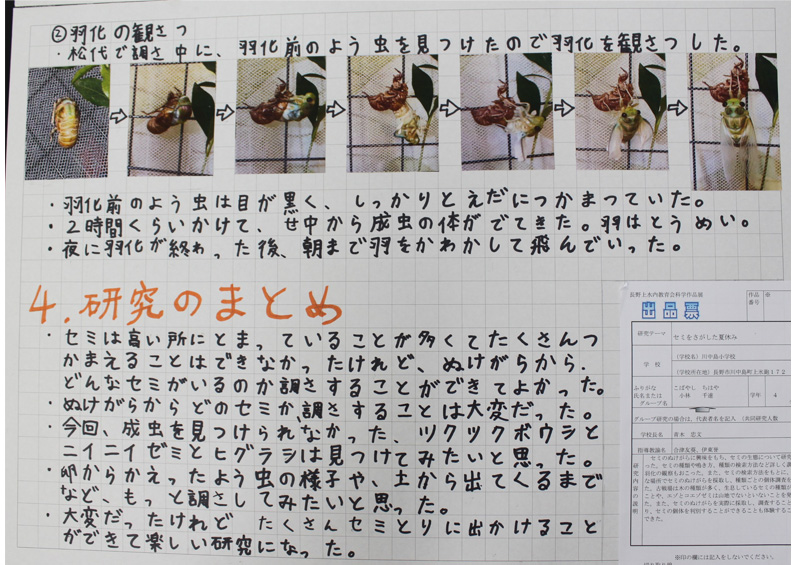 ②羽化の観さつ
・松代で調さ中に、羽化前のよう虫を見つけたので羽化を観さつした。
・羽化前のよう虫は目が黒く、しっかりとえだにつかまつていた。
・２時間くらいかけて、せ中から成虫の体がでてきた。羽はとうめい。
・夜に羽化が終わった後、朝まで羽をかわかして飛んでいった。
4.研究のまとめ
・セミは高い所にとまっていることが多くてたくさんつ
かまえることはできなかったけれど、ぬけがらから、
どんなセミがいるのか調さすることができてよかった。
・ぬけがらからどのセミか調さすることは大変だった。
・今回、成虫を見つけられなかった、ツクツクボウシと
ニイニイゼミとヒグラシは見つけてみたいと思った。
・卵からかえったよう虫の様子や、土から出てくるまで
など、もっと調さしてみたいと思った。
・大変だったけれど たくさんセミとりに出かけること
ができて楽しい研究になった。
長野上水内教育会科学作品展
出品票
作品番号
研究テーマ セミをさがした夏休み
学校
(学校名) 川中島小学校
(学校所在地) 長野市川中島町上氷鉋１７２
ふりがな こばやし ちはや
氏名または 小林 千速 学年 4
グループ名
グループ研究の場合は、代表者名を記入
学校長名 青木
指導教諭名
研究内容説明
※印の欄には記入をしないでください。